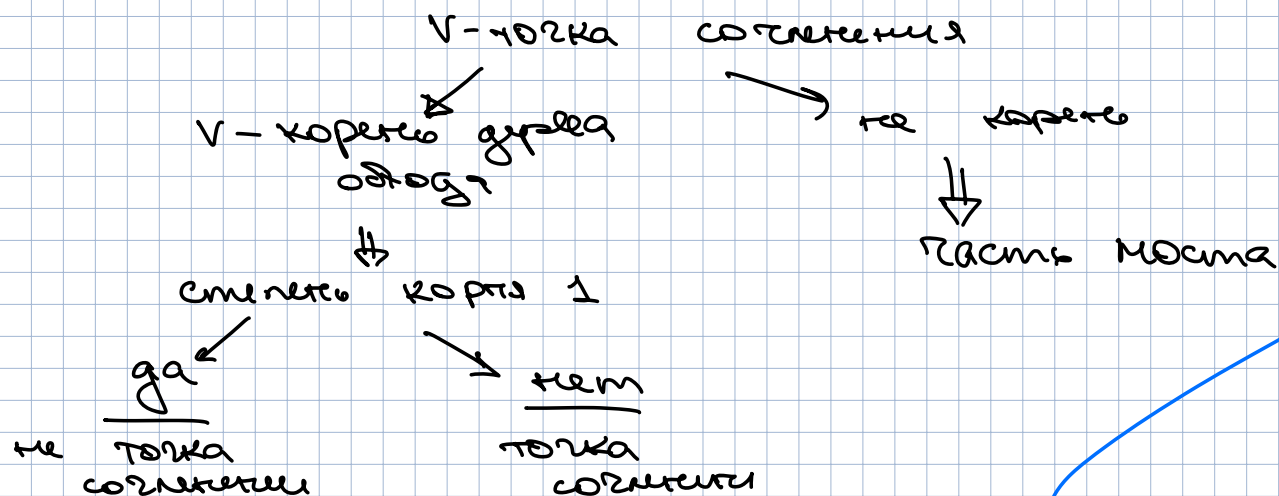 V - точка сочленения
V - корень дерева
обхода
не корень
часть моста
степень корня 1
да
нет
не точка
сочленения
точка
сочленения